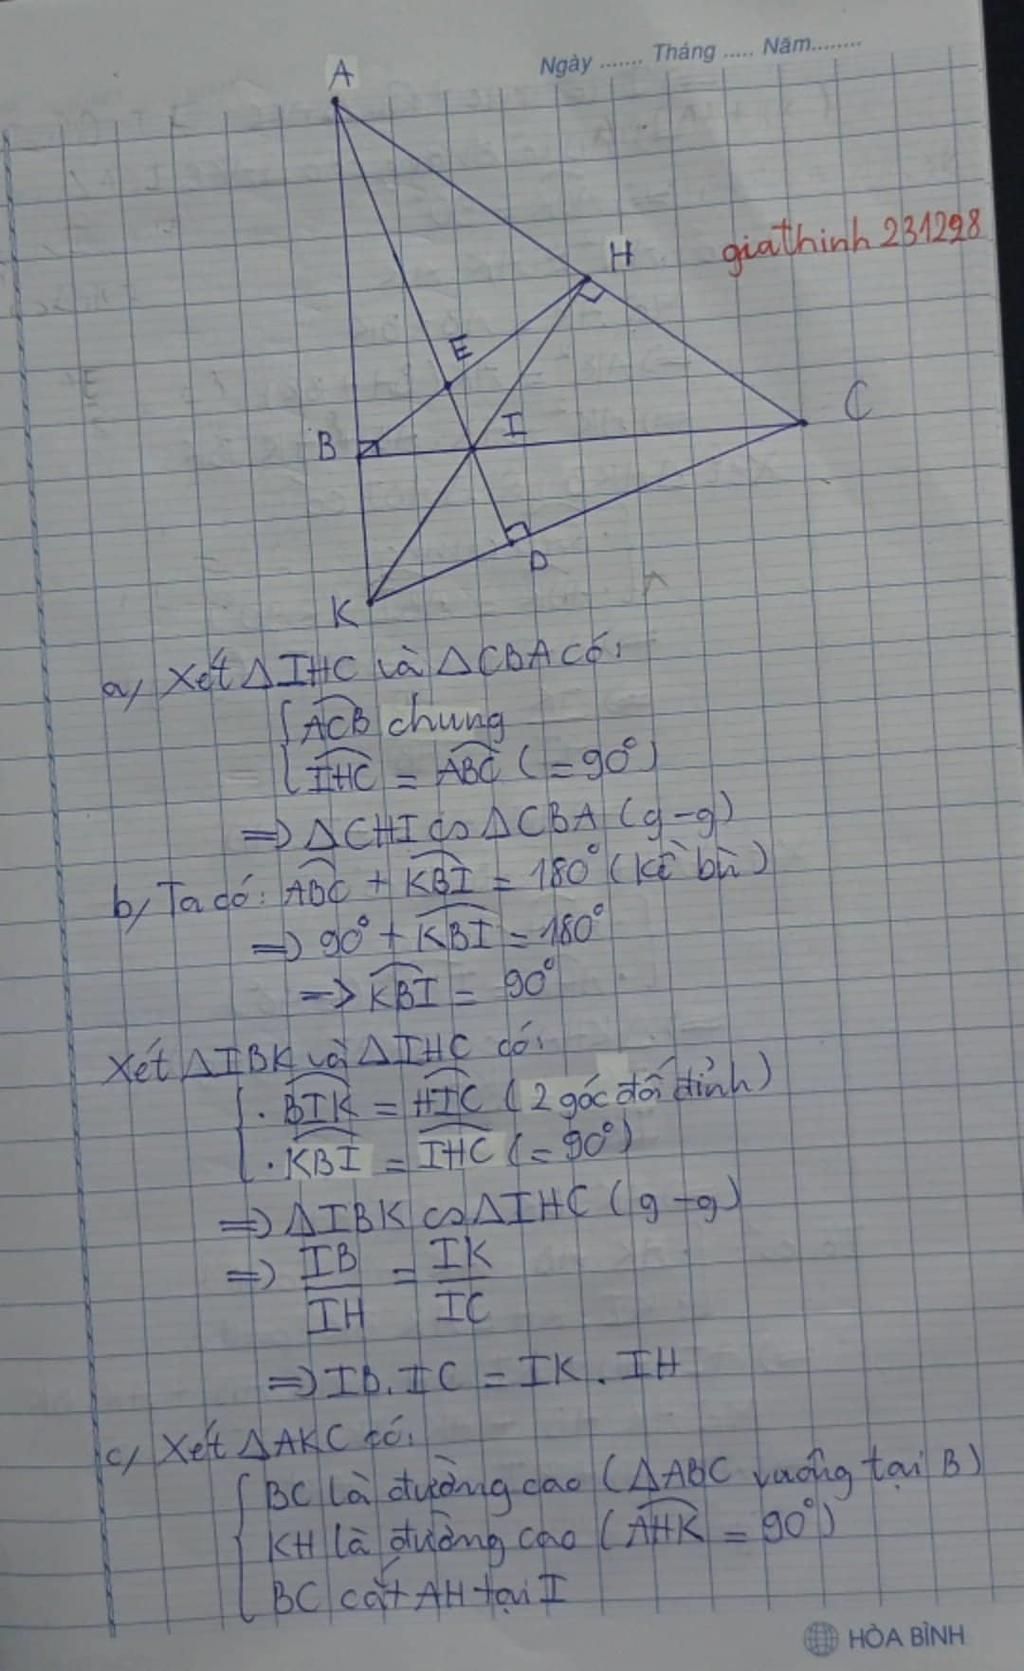 Ngày ....... Tháng ..... Năm........
A
giathinh 231298
H
E
C
B
I
D
K
a, Xét ΔIHC và ΔCBA có:
{ ACB chung
{ IHC = ABC (= 90°)
=> ΔCHI ∽ ΔCBA (g-g)
b, Ta có: ABC + KBI = 180° (kề bù)
=> 90° + KBI = 180°
=> KBI = 90°
Xét ΔIBK và ΔIHC có:
{ . BIK = HIC (2 góc đối đỉnh)
{ . KBI = IHC (= 90°)
=> ΔIBK ∽ ΔIHC (g-g)
=> IB/IH = IK/IC
=> IB. IC = IK . IH
c, Xét ΔAKC có:
{ BC là đường cao (ΔABC vuông tại B)
{ KH là đường cao (AHK = 90°)
{ BC cắt AH tại I
HÒA BÌNH